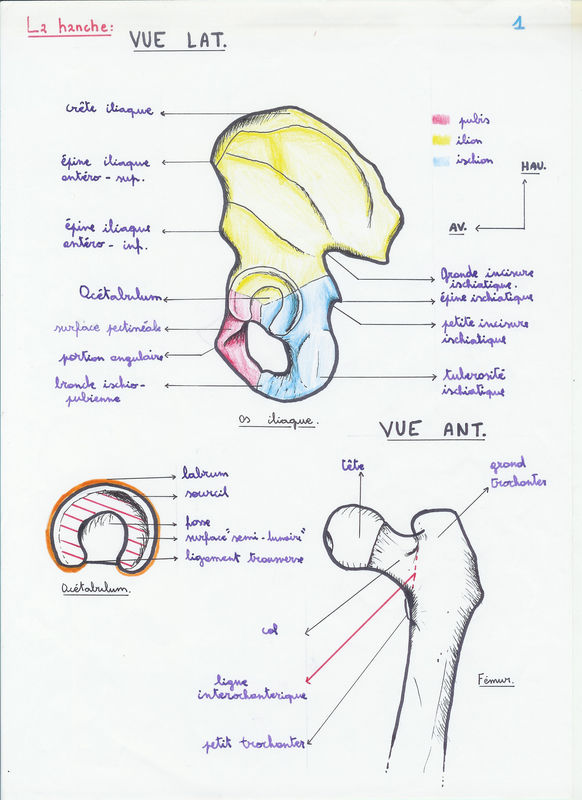 La hanche:
1
VUE LAT.
crête iliaque
pubis
ilion
ischion
épine iliaque
antéro-sup.
HAU.
épine iliaque
antéro-inf.
AV.
Grande incisure
ischiatique.
Acétabulum
épine ischiatique
surface pectinéale
petite incisure
ischiatique
portion angulaire
branche ischio-
pubienne
tuberosité
ischiatique
os iliaque.
VUE ANT.
labrum
sourcil
fosse
surface "semi-lunaire"
ligament transverse
Acétabulum.
tête
grand
trochanter
col
ligne
interochanterique
Fémur.
petit trochanter